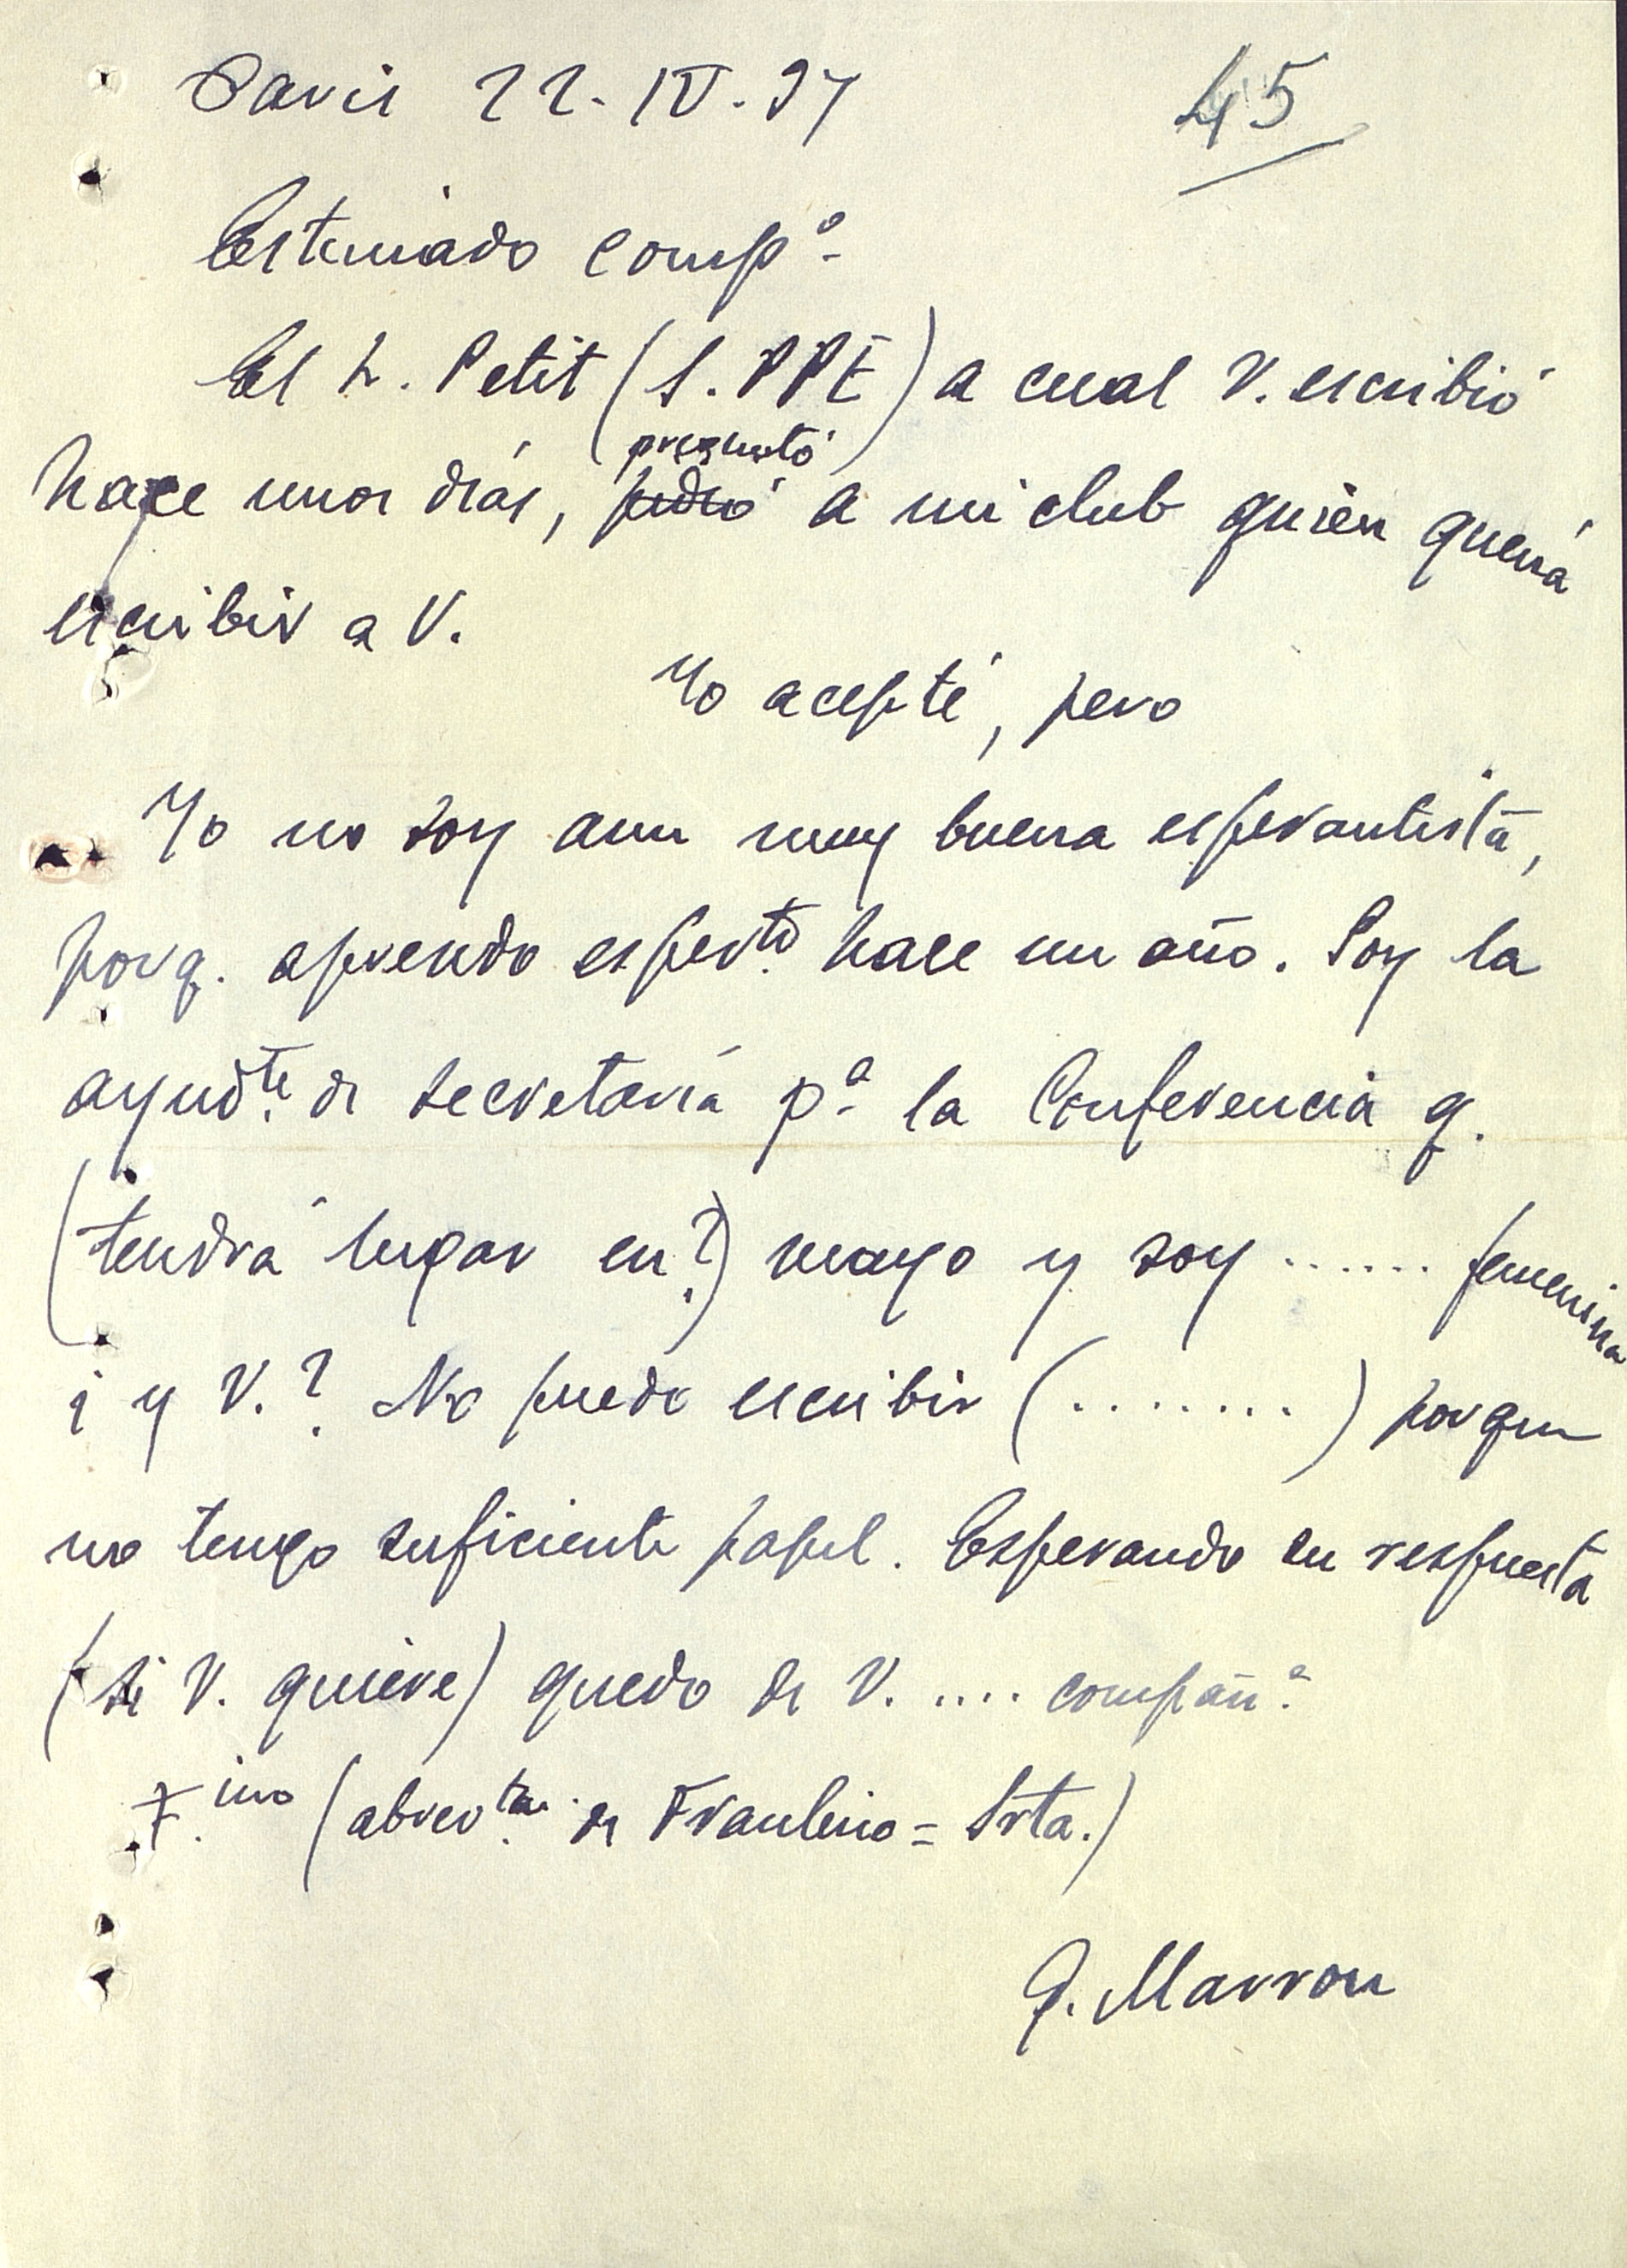 Paris 22-IV-37
45
Estimado compº
El h. Petit (S. PPE) a cual V. escribió
preguntó
hace unos días, pidió a mi club quien querrá
escribir a V.
Yo acepté, pero
Yo no soy aun muy buena esperantista,
porq. aprendo esperto hace un año. Soy la
ayudte de secretaría pª la Conferencia q.
(tendrá lugar en?) mayo y soy ...... femenina
¿y V.? No puedo escribir (........) porque
no tengo suficiente papel. Esperando su respuesta
(si V. quiere) quedo de V. .... compañª
F.ino (abrev. de Fraulino = Srta.)
G. Marron